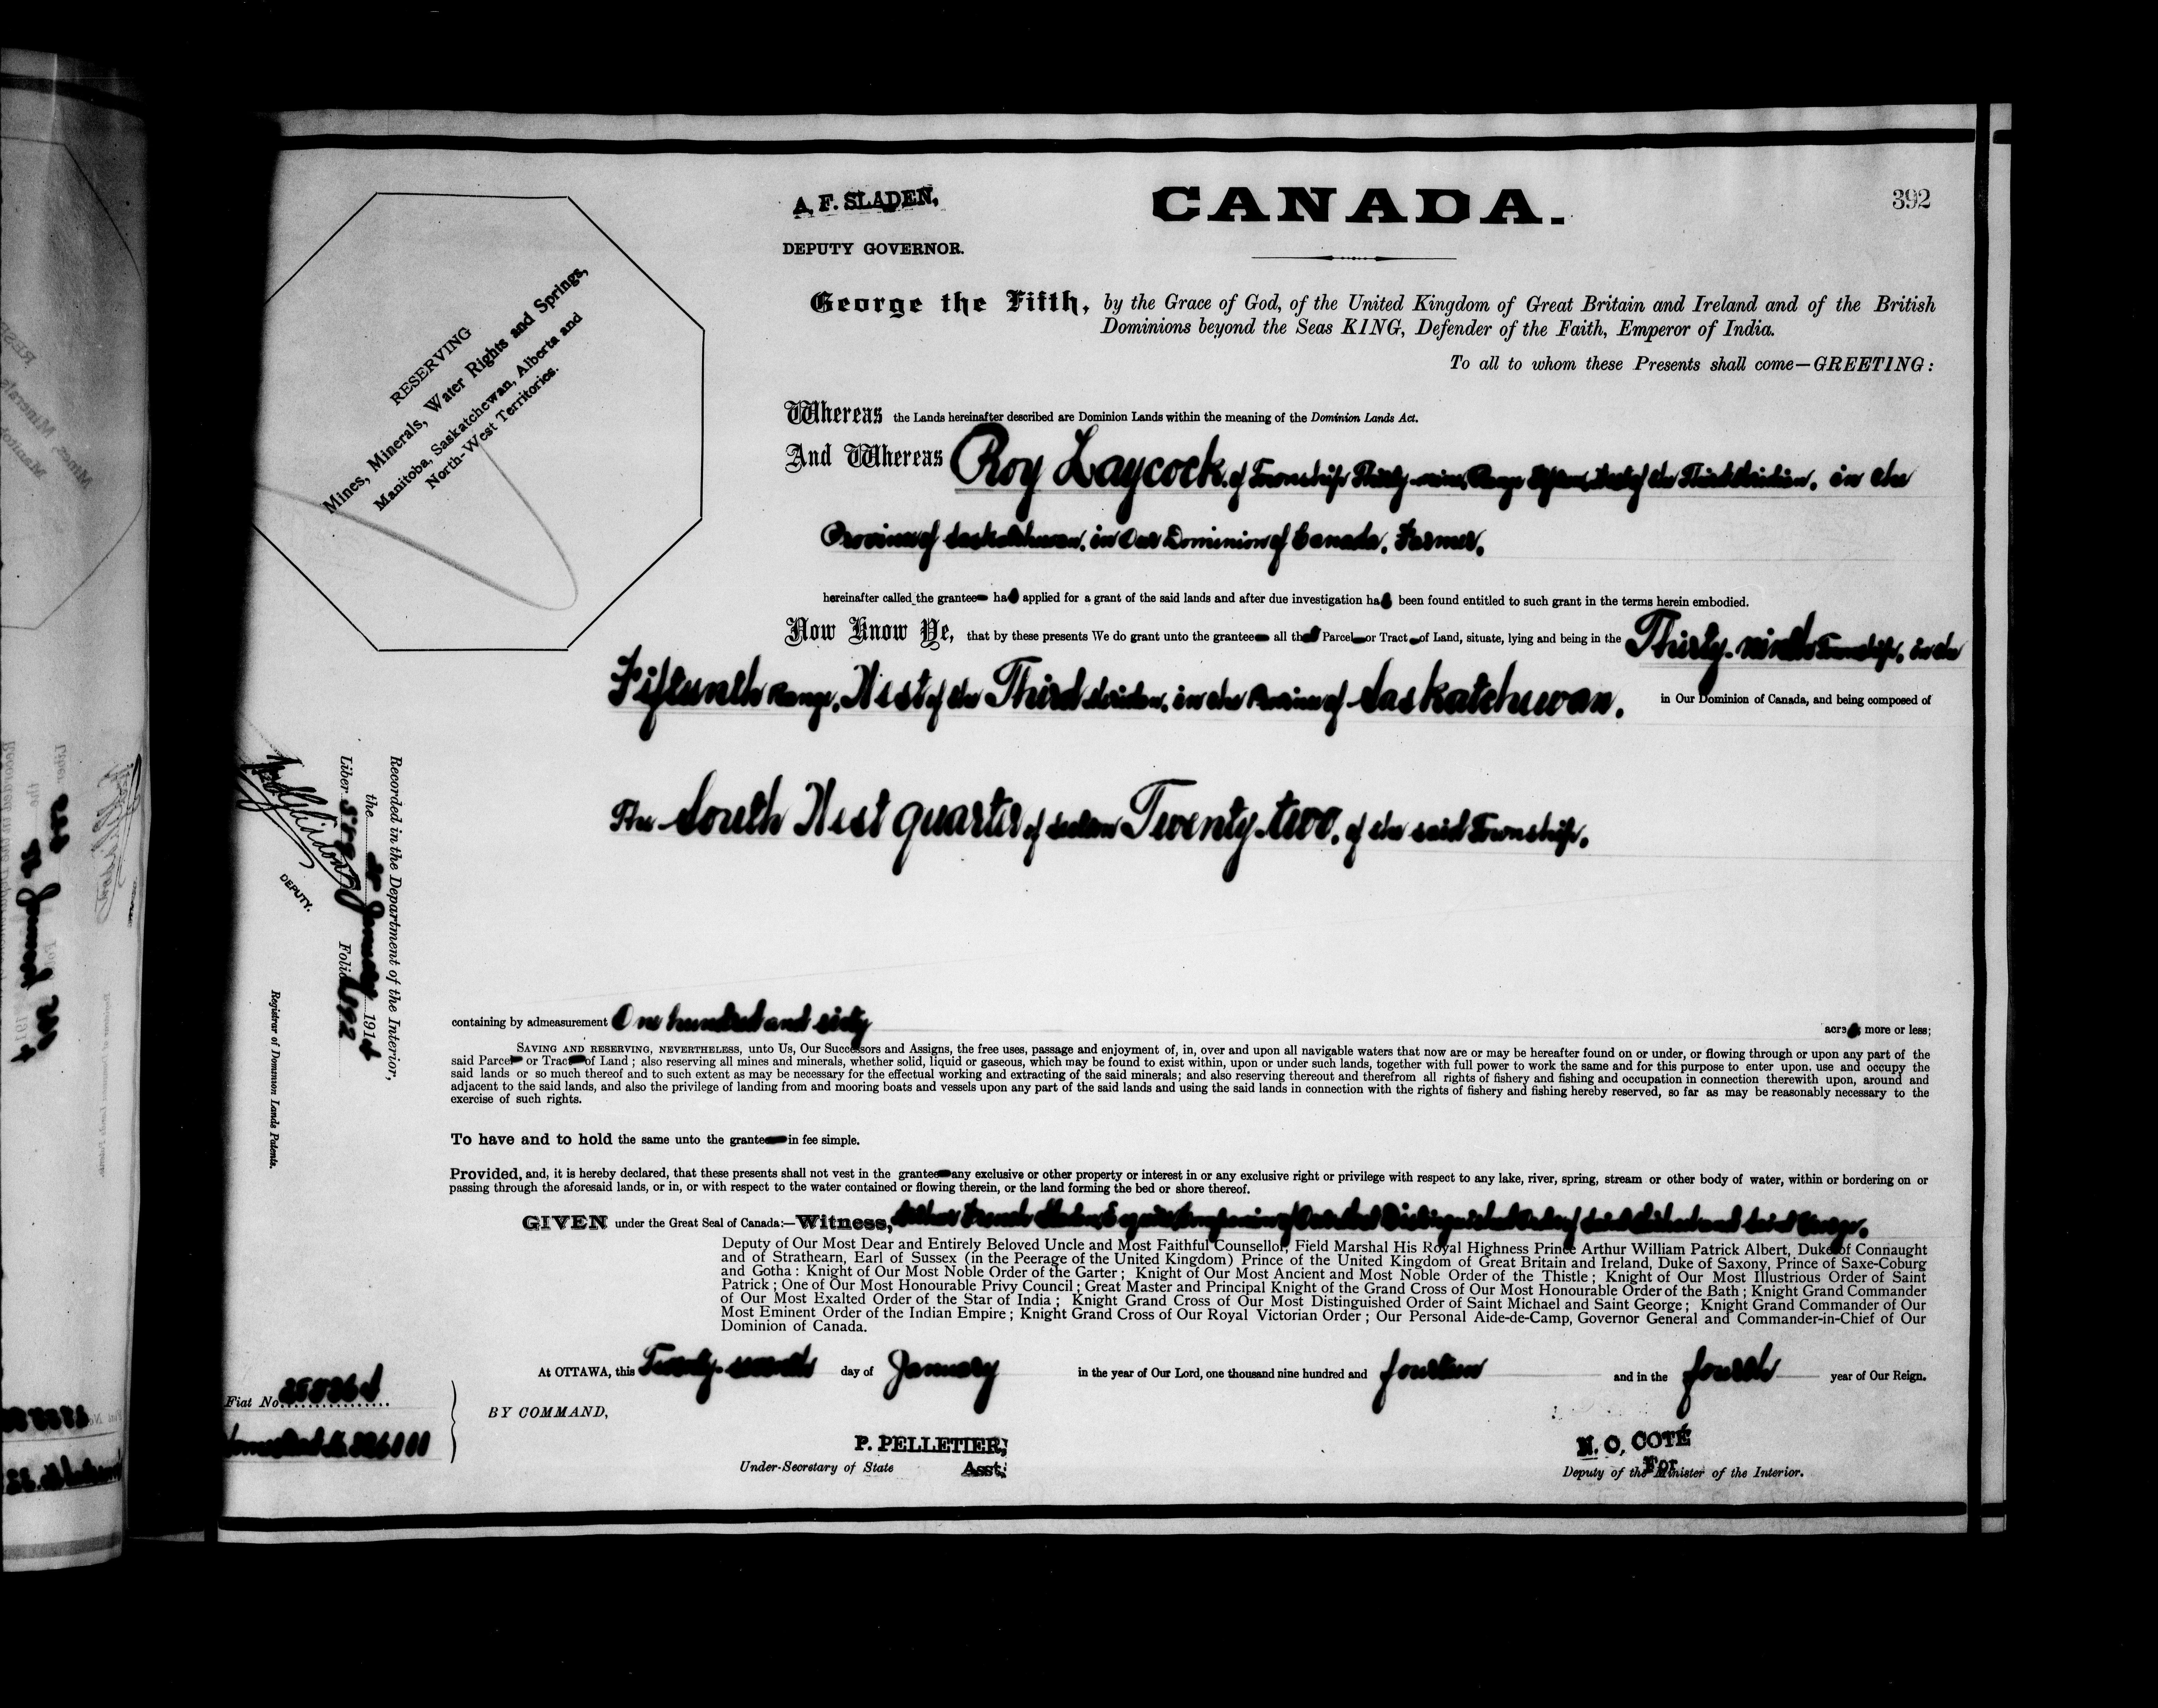 A. F. SLADEN,
DEPUTY GOVERNOR.
CANADA.
392
RESERVING
Mines, Minerals, Water Rights and Springs,
Manitoba, Saskatchewan, Alberta and
North-West Territories.
George the Fifth, by the Grace of God, of the United Kingdom of Great Britain and Ireland and of the British
Dominions beyond the Seas KING, Defender of the Faith, Emperor of India.
To all to whom these Presents shall come—GREETING:
Whereas the Lands hereinafter described are Dominion Lands within the meaning of the Dominion Lands Act.
And Whereas Roy Laycock, of Township Thirty-nine, Range Fifteen, West of the Third Meridian, in the
Province of Saskatchewan, in Our Dominion of Canada, Farmer,
hereinafter called the grantee has applied for a grant of the said lands and after due investigation has been found entitled to such grant in the terms herein embodied.
Now Know Ye, that by these presents We do grant unto the grantee all that Parcel or Tract of Land, situate, lying and being in the Thirty-ninth Township, in the
Fifteenth Range, West of the Third Meridian, in the Province of Saskatchewan, in Our Dominion of Canada, and being composed of
The South West quarter of Section Twenty-two, of the said Township,
Recorded in the Department of the Interior,
the January 1914
Liber Folio 392
DEPUTY.
Registrar of Dominion Lands Patents.
containing by admeasurement One hundred and sixty acres more or less;
SAVING AND RESERVING, NEVERTHELESS, unto Us, Our Successors and Assigns, the free uses, passage and enjoyment of, in, over and upon all navigable waters that now are or may be hereafter found on or under, or flowing through or upon any part of the
said Parcel or Tract of Land; also reserving all mines and minerals, whether solid, liquid or gaseous, which may be found to exist within, upon or under such lands, together with full power to work the same and for this purpose to enter upon, use and occupy the
said lands or so much thereof and to such extent as may be necessary for the effectual working and extracting of the said minerals; and also reserving thereout and therefrom all rights of fishery and fishing and occupation in connection therewith upon, around and
adjacent to the said lands, and also the privilege of landing from and mooring boats and vessels upon any part of the said lands and using the said lands in connection with the rights of fishery and fishing hereby reserved, so far as may be reasonably necessary to the
exercise of such rights.
To have and to hold the same unto the grantee in fee simple.
Provided, and, it is hereby declared, that these presents shall not vest in the grantee any exclusive or other property or interest in or any exclusive right or privilege with respect to any lake, river, spring, stream or other body of water, within or bordering on or
passing through the aforesaid lands, or in, or with respect to the water contained or flowing therein, or the land forming the bed or shore thereof.
GIVEN under the Great Seal of Canada:—Witness, Arthur French Sladen, Esquire, Companion of Our Most Distinguished Order of Saint Michael and Saint George,
Deputy of Our Most Dear and Entirely Beloved Uncle and Most Faithful Counsellor, Field Marshal His Royal Highness Prince Arthur William Patrick Albert, Duke of Connaught
and of Strathearn, Earl of Sussex (in the Peerage of the United Kingdom) Prince of the United Kingdom of Great Britain and Ireland, Duke of Saxony, Prince of Saxe-Coburg
and Gotha: Knight of Our Most Noble Order of the Garter; Knight of Our Most Ancient and Most Noble Order of the Thistle; Knight of Our Most Illustrious Order of Saint
Patrick; One of Our Most Honourable Privy Council; Great Master and Principal Knight of the Grand Cross of Our Most Honourable Order of the Bath; Knight Grand Commander
of Our Most Exalted Order of the Star of India; Knight Grand Cross of Our Most Distinguished Order of Saint Michael and Saint George; Knight Grand Commander of Our
Most Eminent Order of the Indian Empire; Knight Grand Cross of Our Royal Victorian Order; Our Personal Aide-de-Camp, Governor General and Commander-in-Chief of Our
Dominion of Canada.
At OTTAWA, this Twenty-seventh day of January in the year of Our Lord, one thousand nine hundred and fourteen and in the fourth year of Our Reign.
Fiat No.
BY COMMAND,
P. PELLETIER,
Under-Secretary of State Asst.
N. O. COTÉ
For
Deputy of the Minister of the Interior.